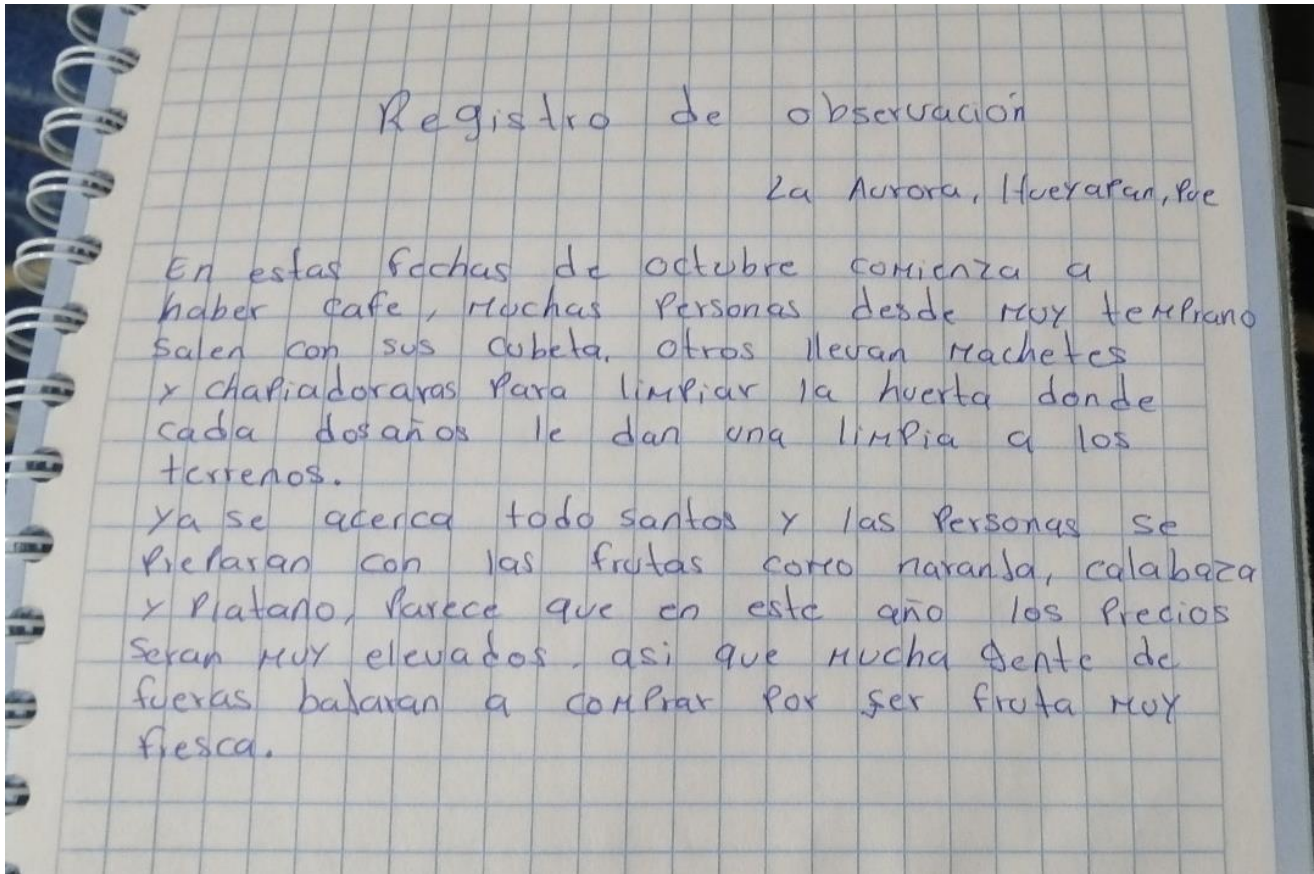 Registro de observación
La Aurora, Hueyapan, Pue
En estas fechas de octubre comienza a
haber cafe, muchas personas desde muy temprano
salen con sus cubeta. otros llevan machetes
y chapiadoraras para limpiar la huerta donde
cada dos años le dan una limpia a los
terrenos.
ya se acerca todo santos y las personas se
preparan con las frutas como naranja, calabaza
y platano, parece que en este año los precios
seran muy elevados. asi que mucha gente de
fueras bajaran a comprar por ser fruta muy
fresca.